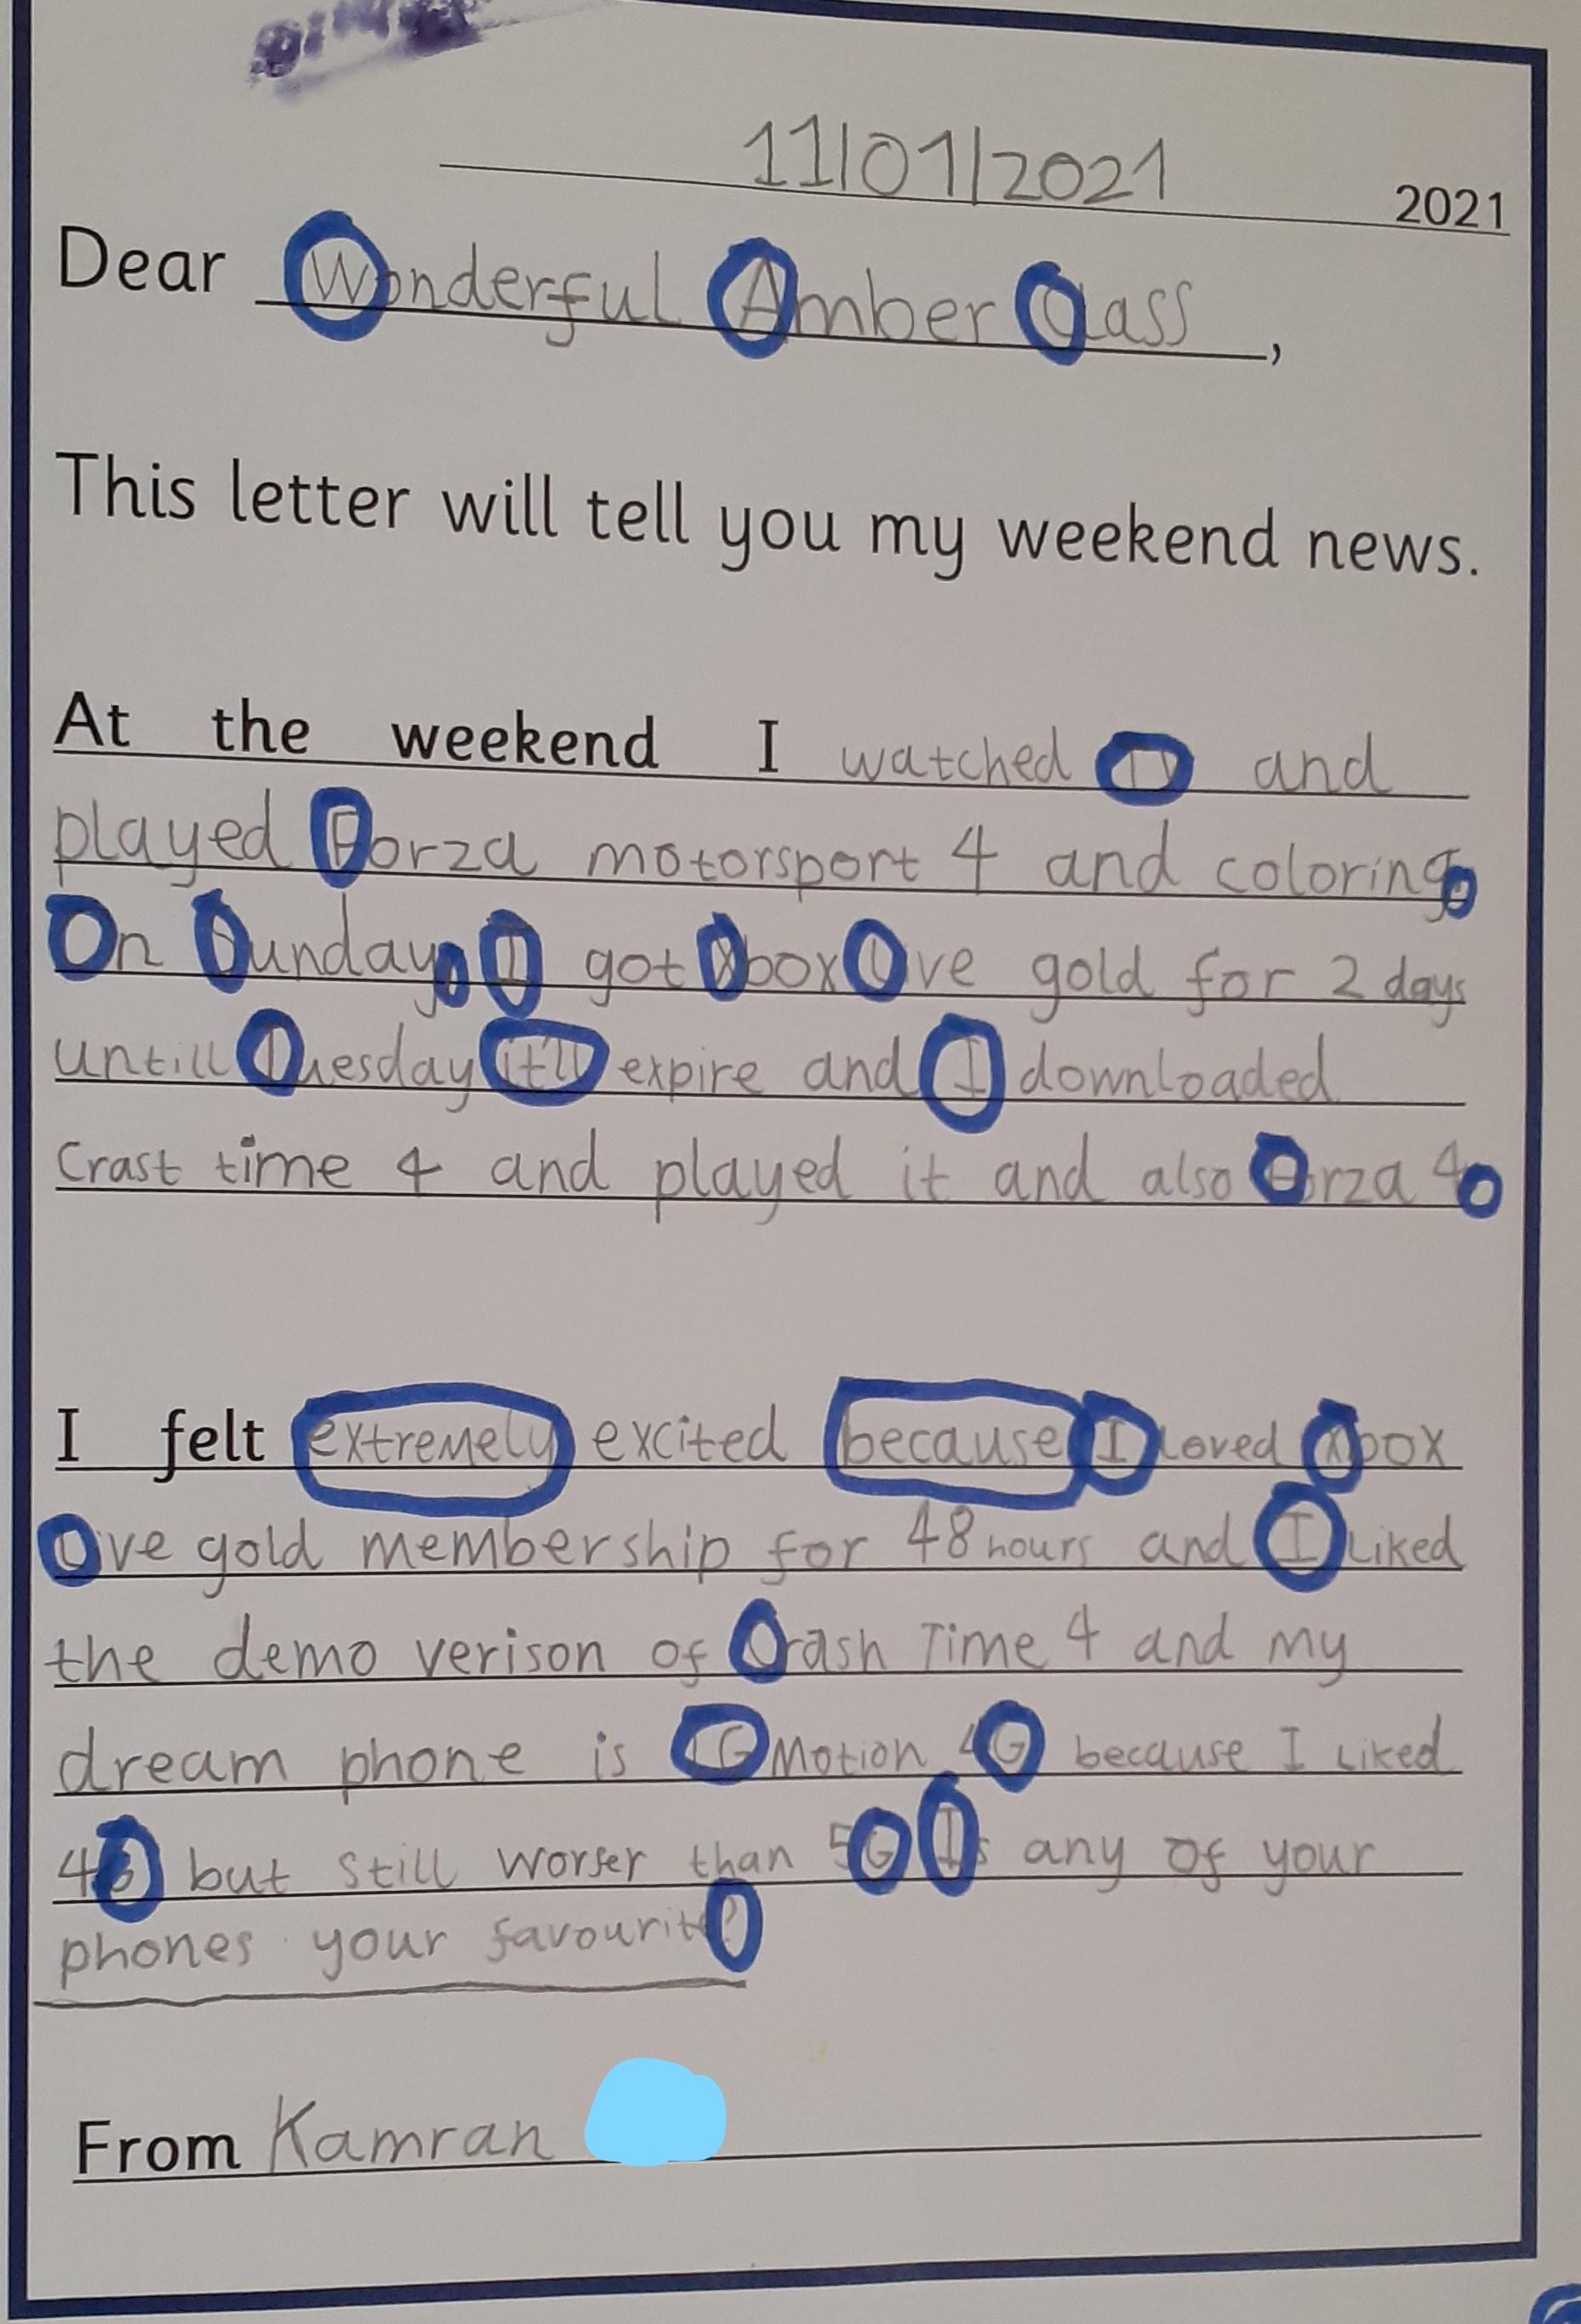 11/01/2021 2021
Dear Wonderful Amber Class,
This letter will tell you my weekend news.
At the weekend I watched TV and
played Forza motorsport 4 and coloring.
On Sunday, I got Xbox Live gold for 2 days
untill Tuesday it'll expire and I downloaded
Crast time 4 and played it and also Forza 4.
I felt extremely excited because I loved Xbox
Live gold membership for 48 hours and I liked
the demo verison of Crash Time 4 and my
dream phone is LG Motion 4G because I liked
4G but still worser than 5G Is any of your
phones your favourite?
From Kamran